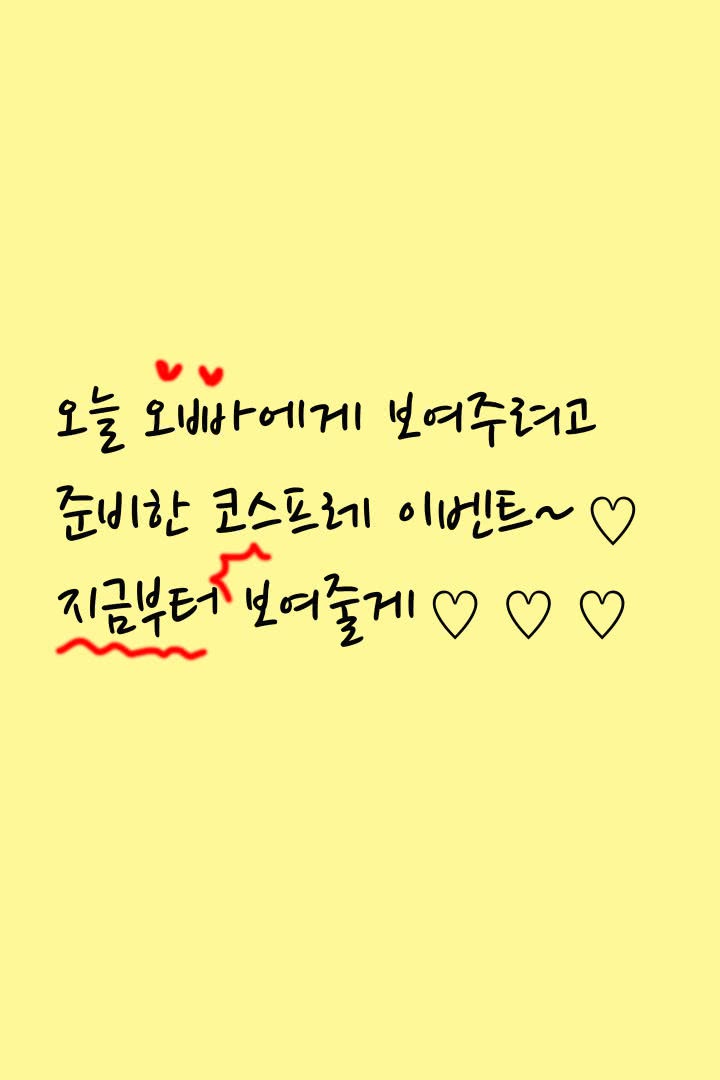 오늘 오빠에게 보여주려고
준비한 코스프레 이벤트~ ♡
지금부터 보여줄게 ♡ ♡ ♡